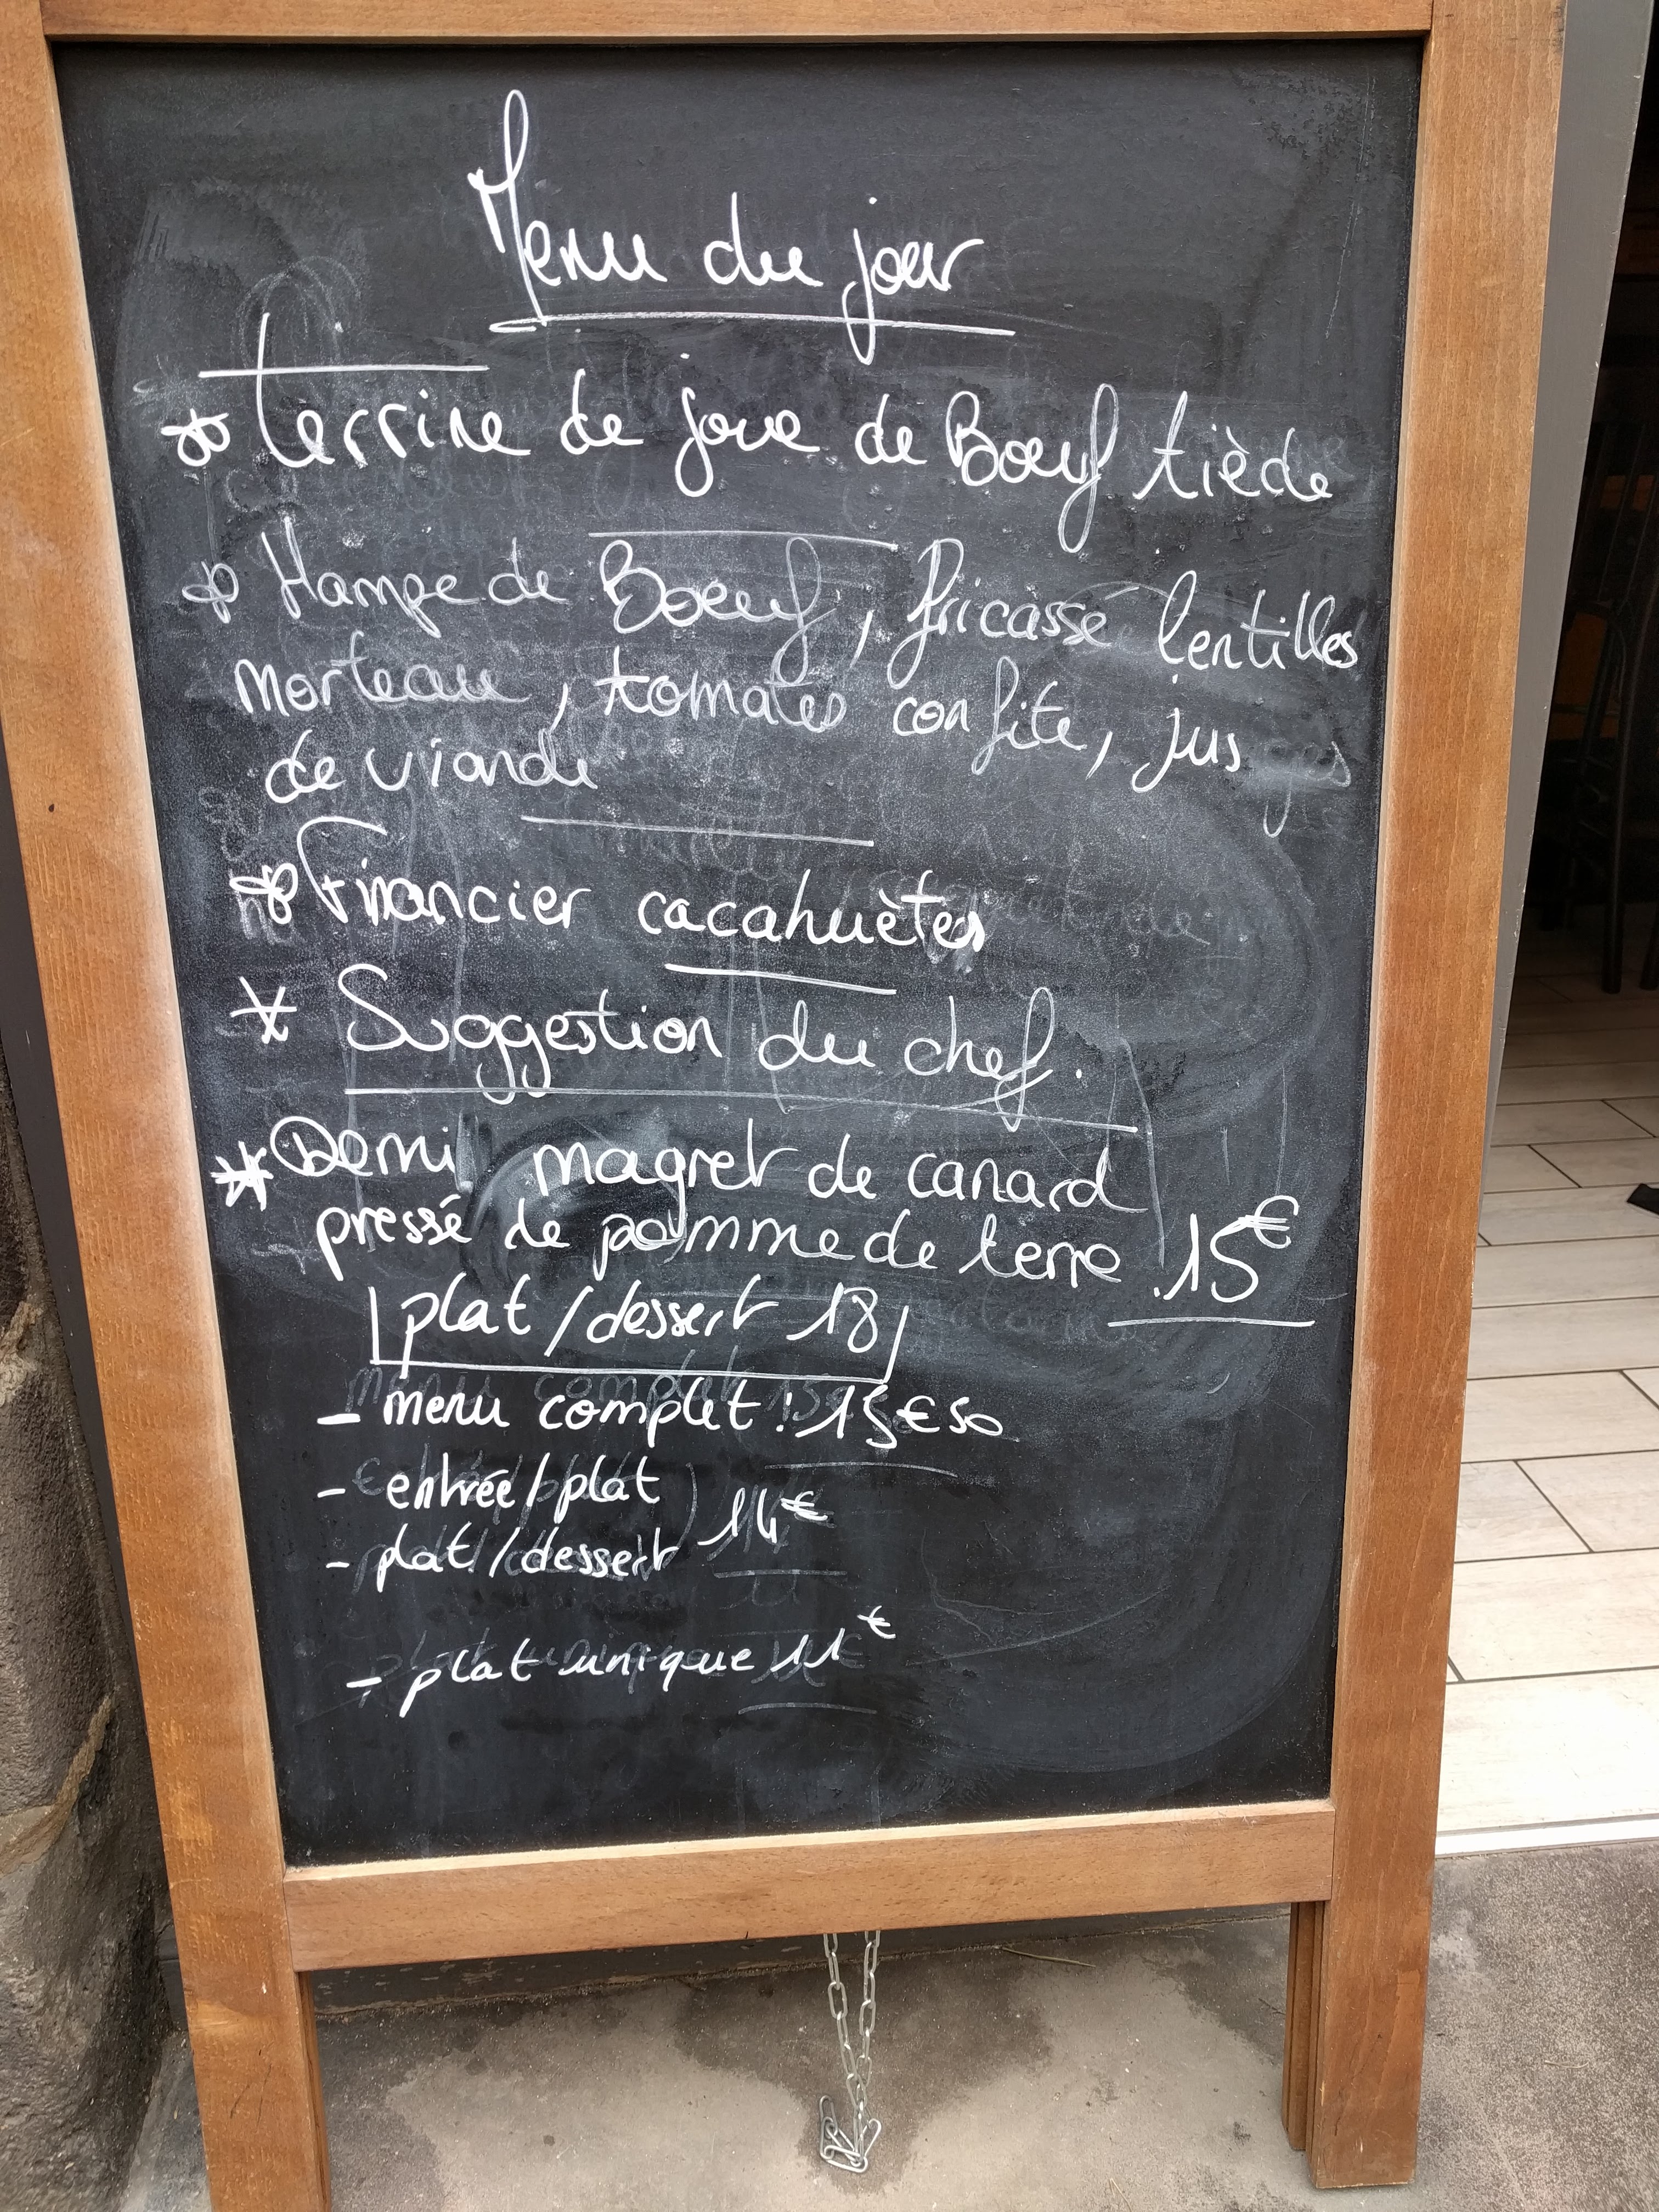 Menu du jour
* Terrine de joue de Bœuf tiède
* Hampe de Bœuf, fricassé lentilles
morteau, tomates confite, jus
de viande
* Financier cacahuètes
* Suggestion du chef.
* Demi magret de canard
pressé de pomme de terre 15€
plat/dessert 18
- menu complet : 15€50
- entrée/plat
14€
- plat/dessert
- plat unique 11€